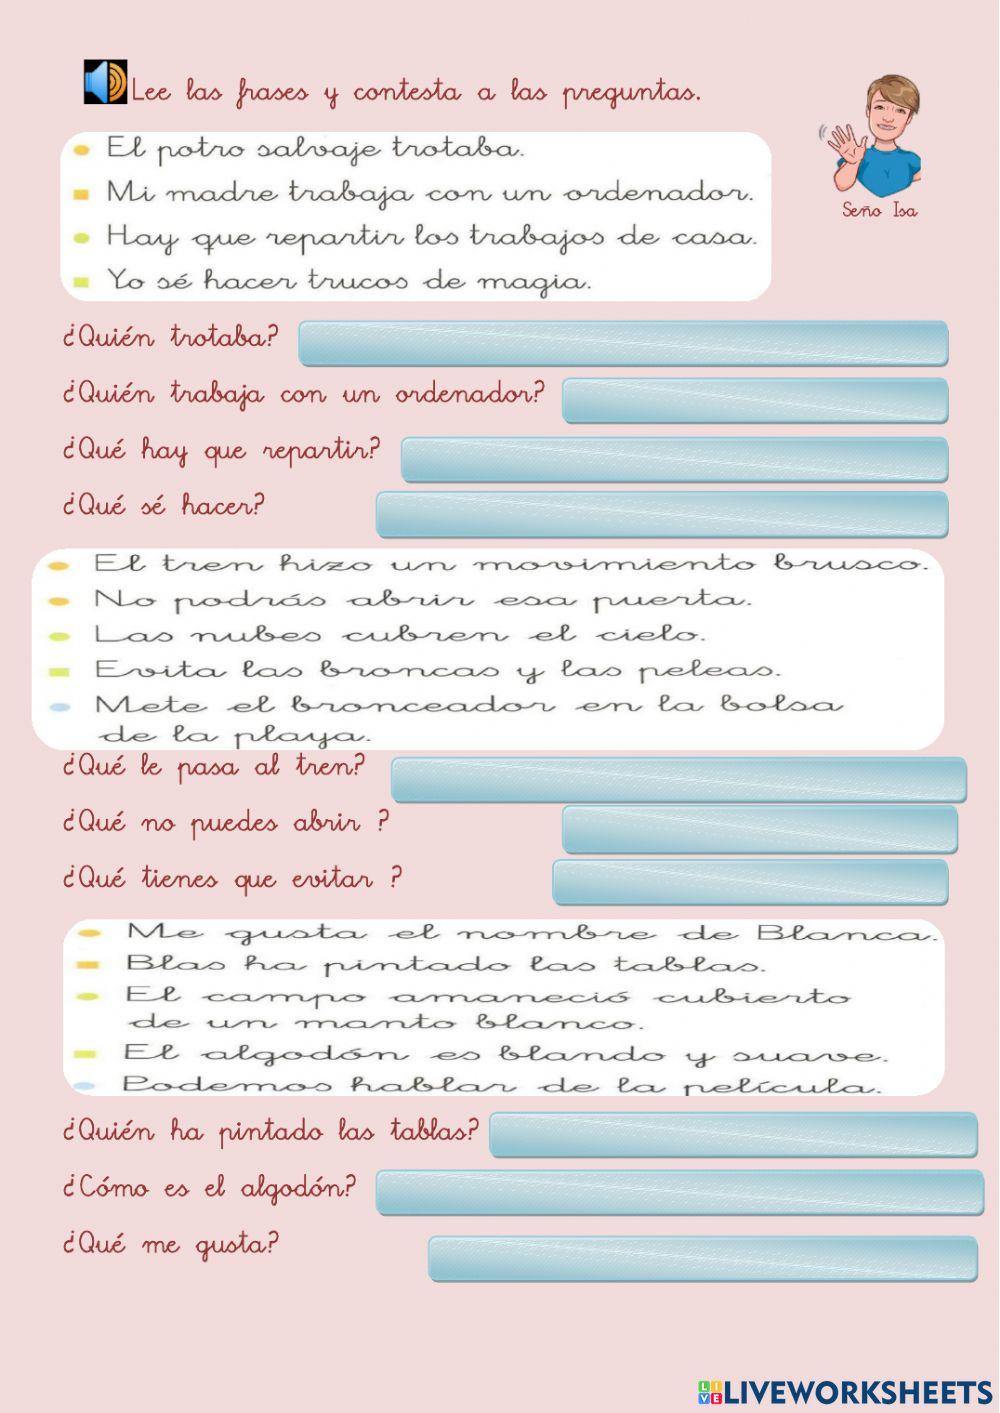 Lee las frases y contesta a las preguntas.
El potro salvaje trotaba.
Mi madre trabaja con un ordenador.
Hay que repartir los trabajos de casa.
Yo sé hacer trucos de magia.
Seño Isa
¿Quién trotaba?
¿Quién trabaja con un ordenador?
¿Qué hay que repartir?
¿Qué sé hacer?
El tren hizo un movimiento brusco.
No podrás abrir esa puerta.
Las nubes cubren el cielo.
Evita las broncas y las peleas.
Mete el bronceador en la bolsa
de la playa.
¿Qué le pasa al tren?
¿Qué no puedes abrir ?
¿Qué tienes que evitar ?
Me gusta el nombre de Blanca.
Blas ha pintado las tablas.
El campo amaneció cubierto
de un manto blanco.
El algodón es blando y suave.
Podemos hablar de la película.
¿Quién ha pintado las tablas?
¿Cómo es el algodón?
¿Qué me gusta?
LIVE LIVEWORKSHEETS